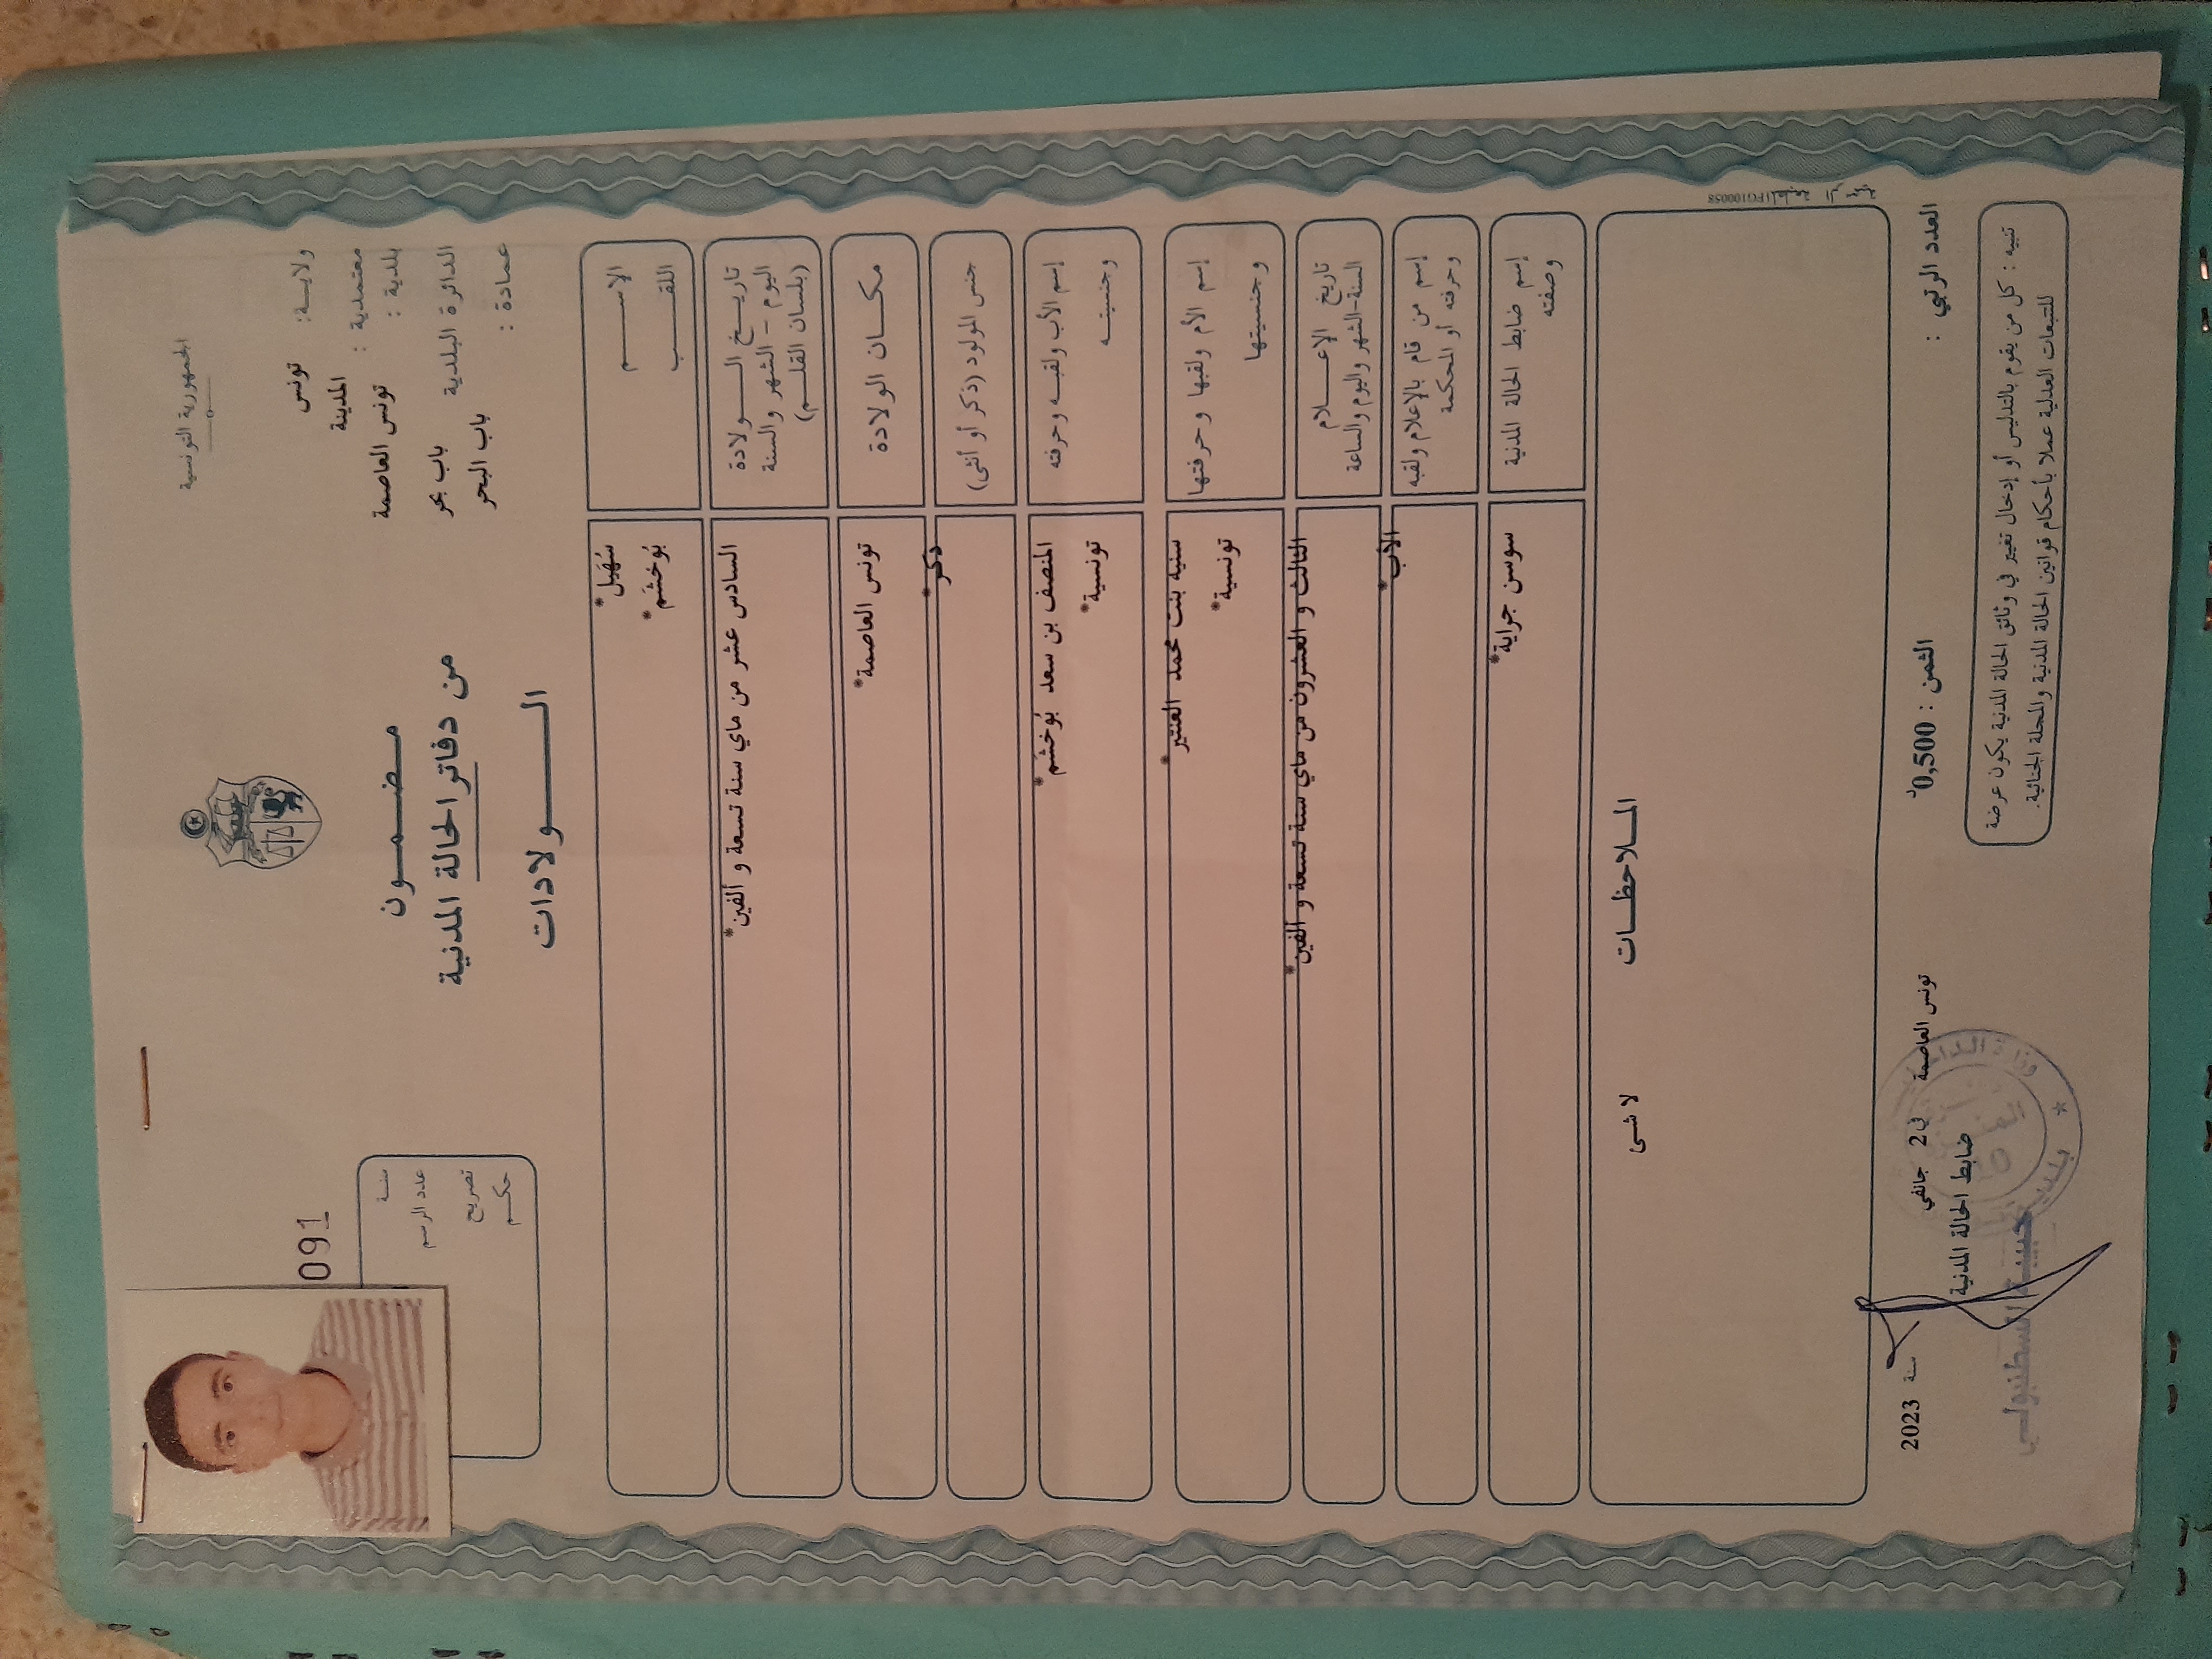 الجمهورية التونسية
ولايــة: تونس
معتمدية : المدينة
بلدية : تونس العاصمة
الدائرة البلدية باب بحر
عمادة : باب البحر
مـضـمــون
من دفاتر الحالة المدنية
الـــولادات
091
سنـة
عدد الرسم
تصريح
حكـم
الاســـم سُهَيل*
اللقـــب بُوخشَم*
تاريــخ الــــولادة السادس عشر من ماي سنة تسعة و ألفين*
اليوم - الشهر والسنة
(بلسان القلــم)
مكــان الولادة تونس العاصمة*
جنس المولود (ذكر أو أنثى) ذكر*
إسم الأب ولقبــه وحرفته المنصف بن سعد بُوخشَم*
وجنسيتــه تونسية*
إسم الأم ولقبها وحرفتها سنية بنت محمد العنتير*
وجنسيتها تونسية*
تاريخ الإعـــلام الثالث و العشرون من ماي سنة تسعة و ألفين*
السنة-الشهر واليوم والساعة
إسم من قام بالإعلام ولقبه الأب*
وحرفته أو المحكمة
إسم ضابط الحالة المدنية سوسن جراية*
وصفته
المـلاحظــات
لا شئ
العدد الرتبي :
الثمن : 0,500د
تونس العاصمة في 2 جانفي سنة 2023
ضابط الحالة المدنية
تنبيه : كل من يقوم بالتدليس أو إدخال تغيير في وثائق الحالة المدنية يكون عرضة
للتبعات العدلية عملا بأحكام قوانين الحالة المدنية والمجلة الجنائية.